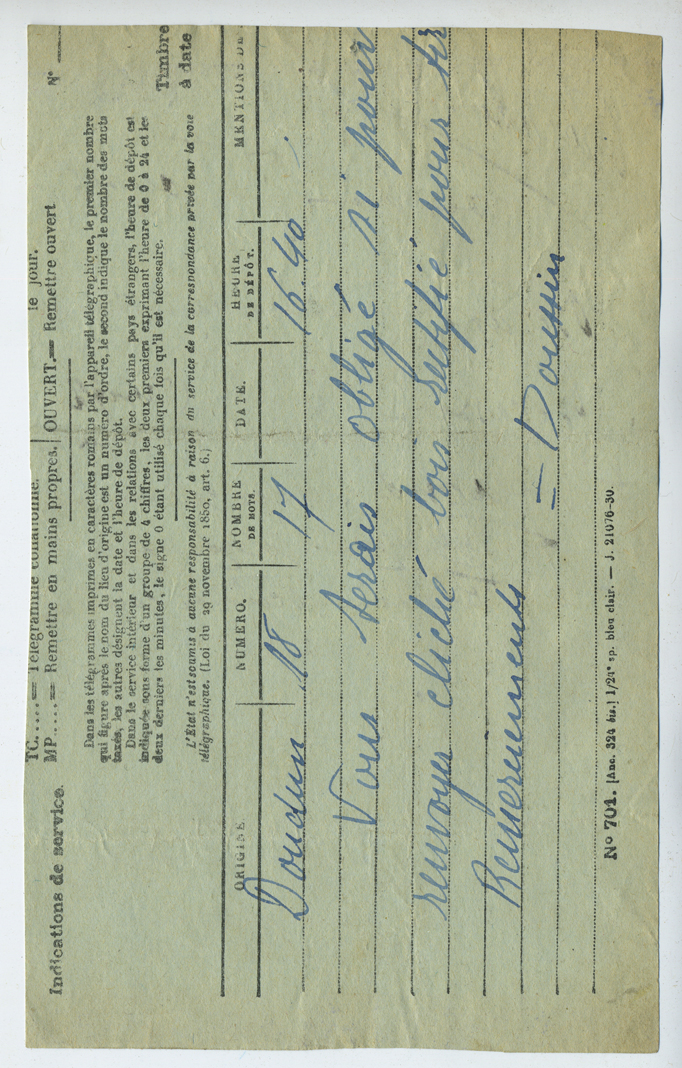 TC.....= Télégramme collationné.
le jour.
MP.....= Remettre en mains propres.
OUVERT.= Remettre ouvert
Indications de service.
N°
Timbre
à date
Dans les télégrammes imprimés en caractères romains par l'appareil télégraphique, le premier nombre
qui figure après le nom du lieu d'origine est un numéro d'ordre, le second indique le nombre des mots
taxés, les autres désignent la date et l'heure de dépôt.
Dans le service intérieur et dans les relations avec certains pays étrangers, l'heure de dépôt est
indiquée sous forme d'un groupe de 4 chiffres, les deux premiers exprimant l'heure de 0 à 24 et les
deux derniers les minutes, le signe 0 étant utilisé chaque fois qu'il est nécessaire.
L'État n'est soumis à aucune responsabilité à raison du service de la correspondance privée par la voie
télégraphique. (Loi du 29 novembre 1850, art. 6.)
ORIGINE NUMÉRO. NOMBRE DE MOTS. DATE. HEURE DE DÉPÔT. MENTIONS DE
18 17 16.40
Vous serais obligé si pour
renvoyer cliché bois rectifié pour tir
Remerciements
N° 701. [Anc. 324 bis.] 1/24e sp. bleu clair. — J. 21076-30.